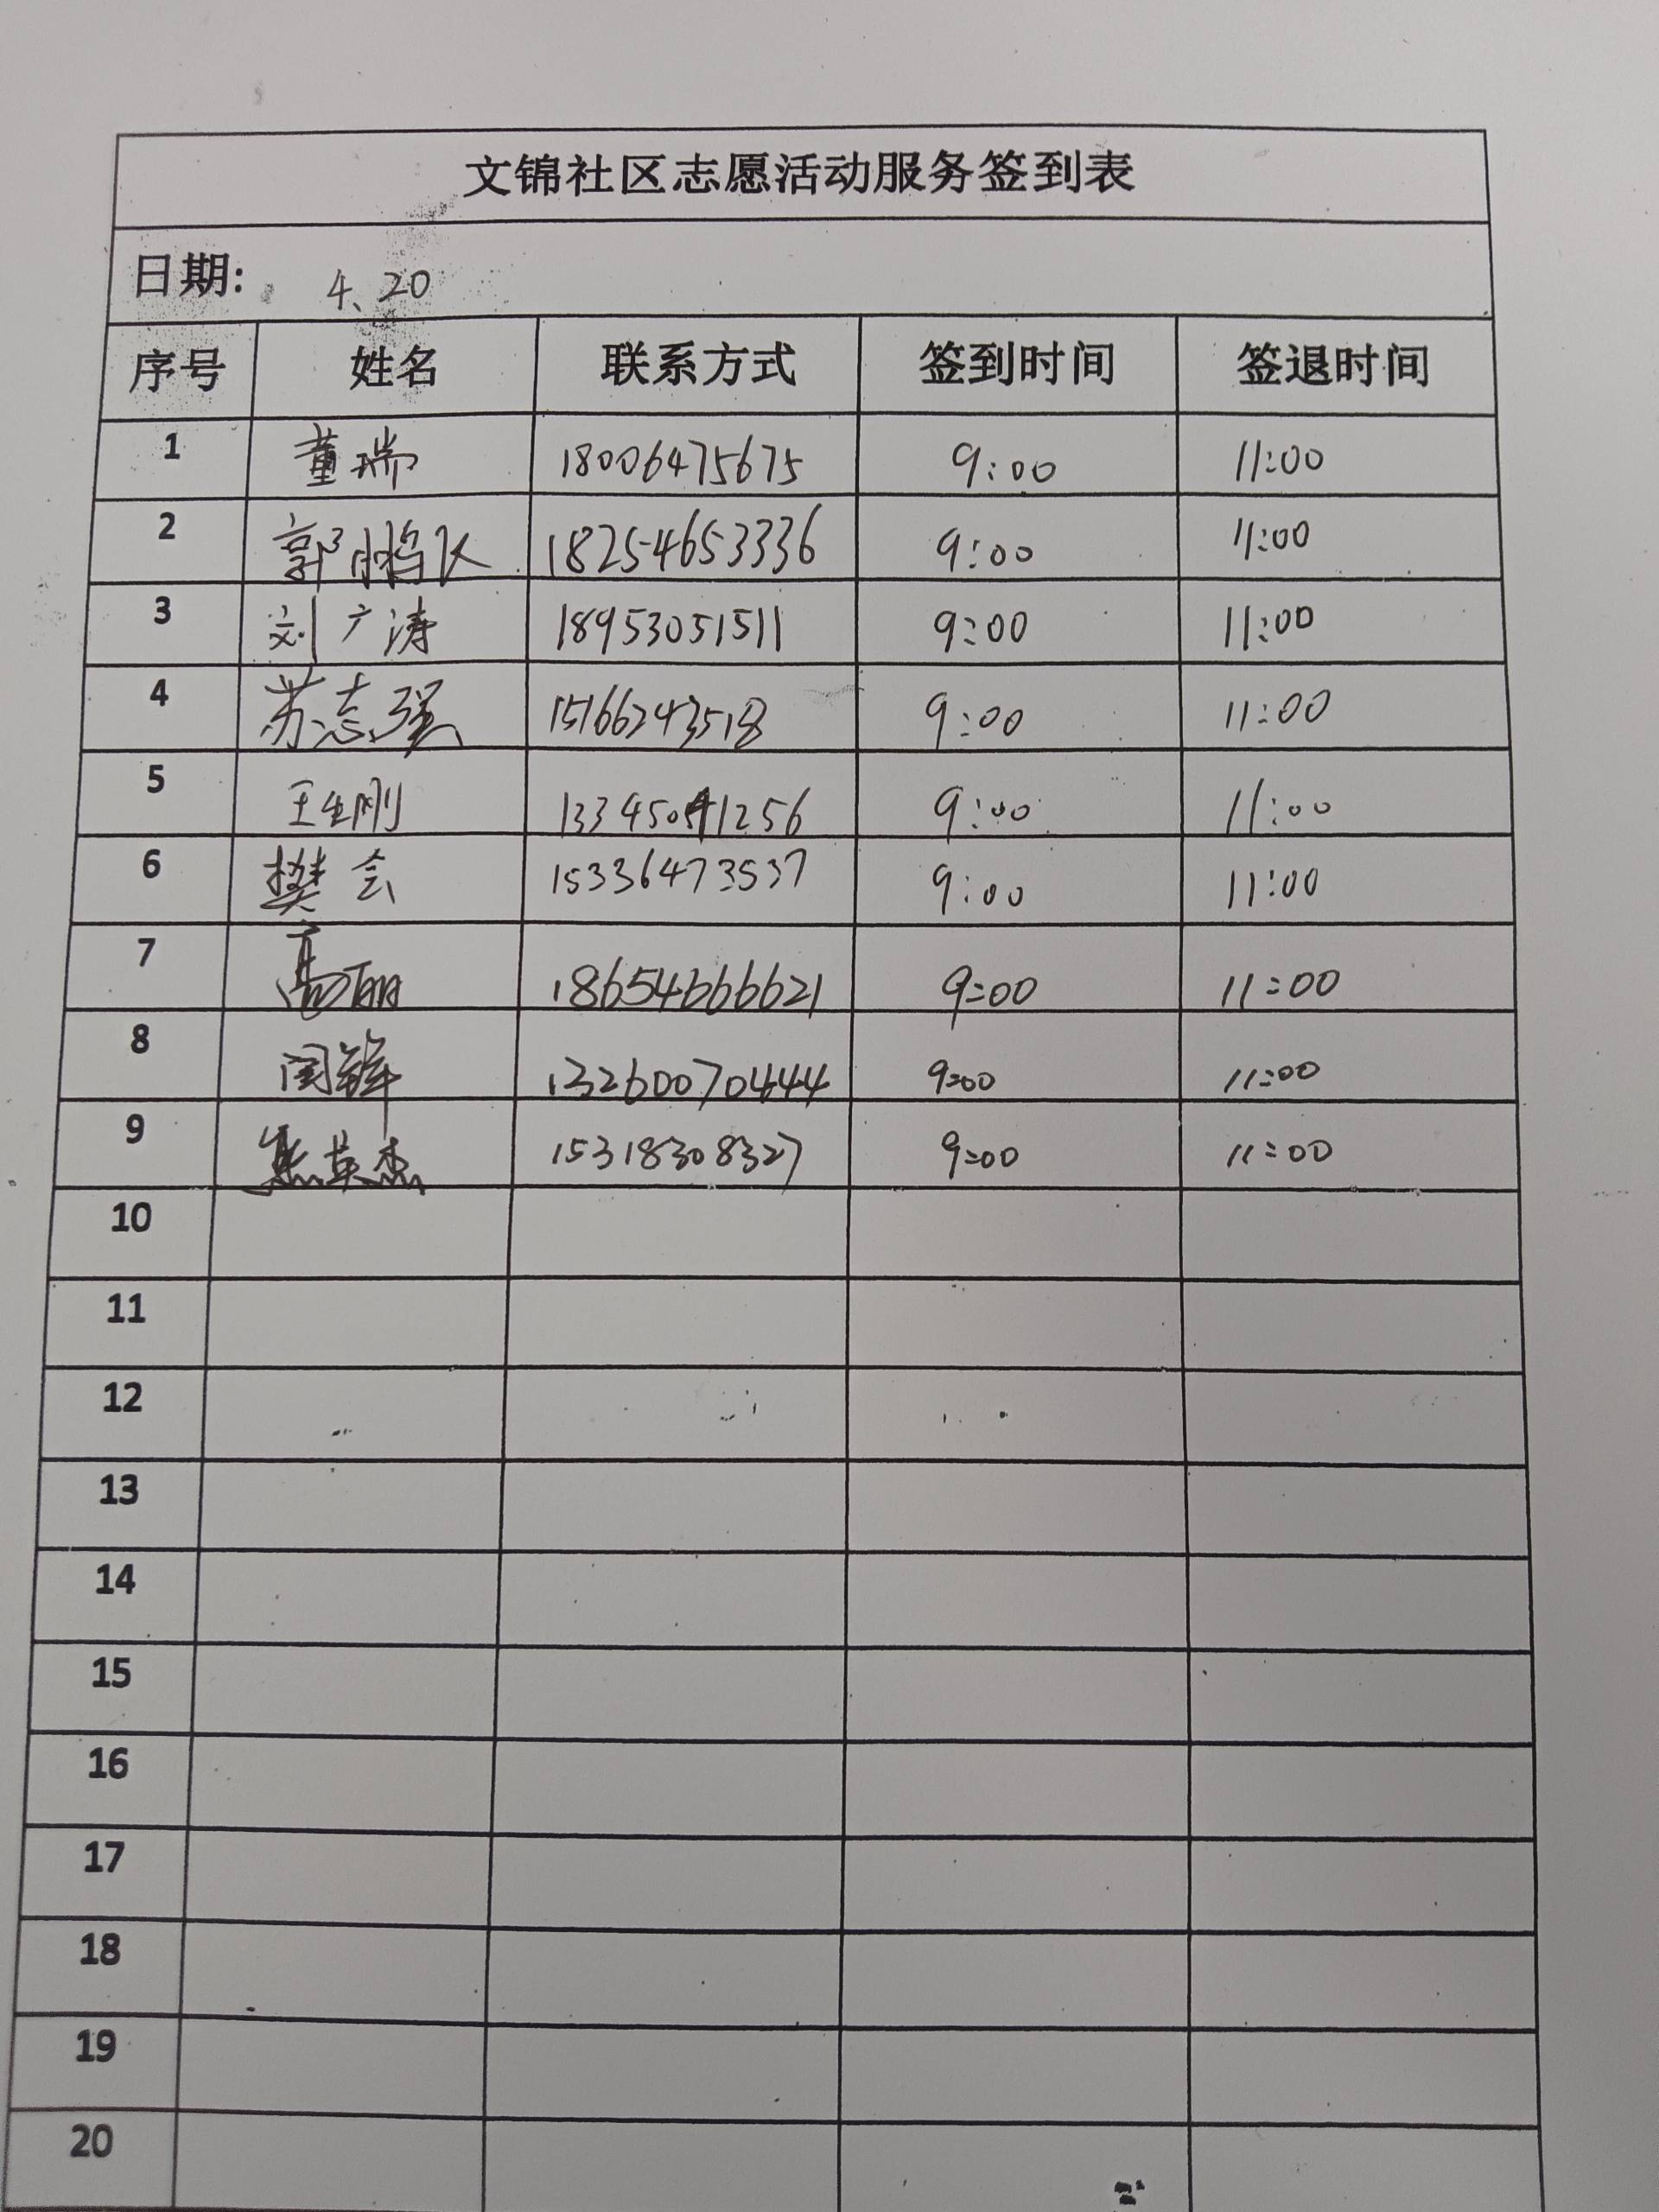 文锦社区志愿活动服务签到表
日期: 4、20
序号 姓名 联系方式 签到时间 签退时间
1 董瑞 18006475675 9:00 11:00
2 郭鹏飞 18254653336 9:00 11:00
3 刘广涛 18953051511 9:00 11:00
4 苏志强 15166243518 9:00 11:00
5 王生刚 9:00 11:00
6 樊会 15336473537 9:00 11:00
7 高丽 18654666621 9:00 11:00
8 闫锋 13260070444 9:00 11:00
9 焦英杰 15318308327 9:00 11:00
10
11
12
13
14
15
16
17
18
19
20